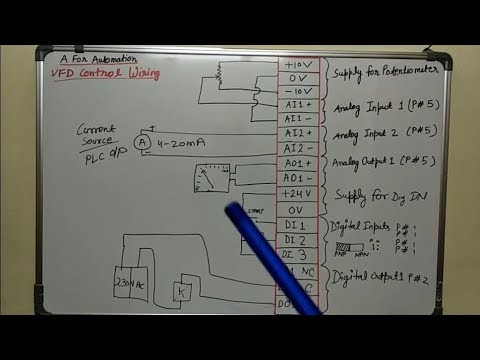 A For Automation
VFD Control Wiring
+10V
0V
-10V
Supply for Potentiometer
AI1+
AI1-
Analog Input 1 (P#5)
AI2+
AI2-
Analog Input 2 (P#5)
Current
Source
PLC o/p
A
+
-
4-20mA
AO1+
AO1-
Analog Output 1 (P#5)
+24V
0V
Supply for Dig IN
START
DI 1
DI 2
DI 3
Digital Inputs P# 1
P# 1
P# 1
PNP NPN
NC
C
DO
Digital Output 1 P#2
230V AC
K